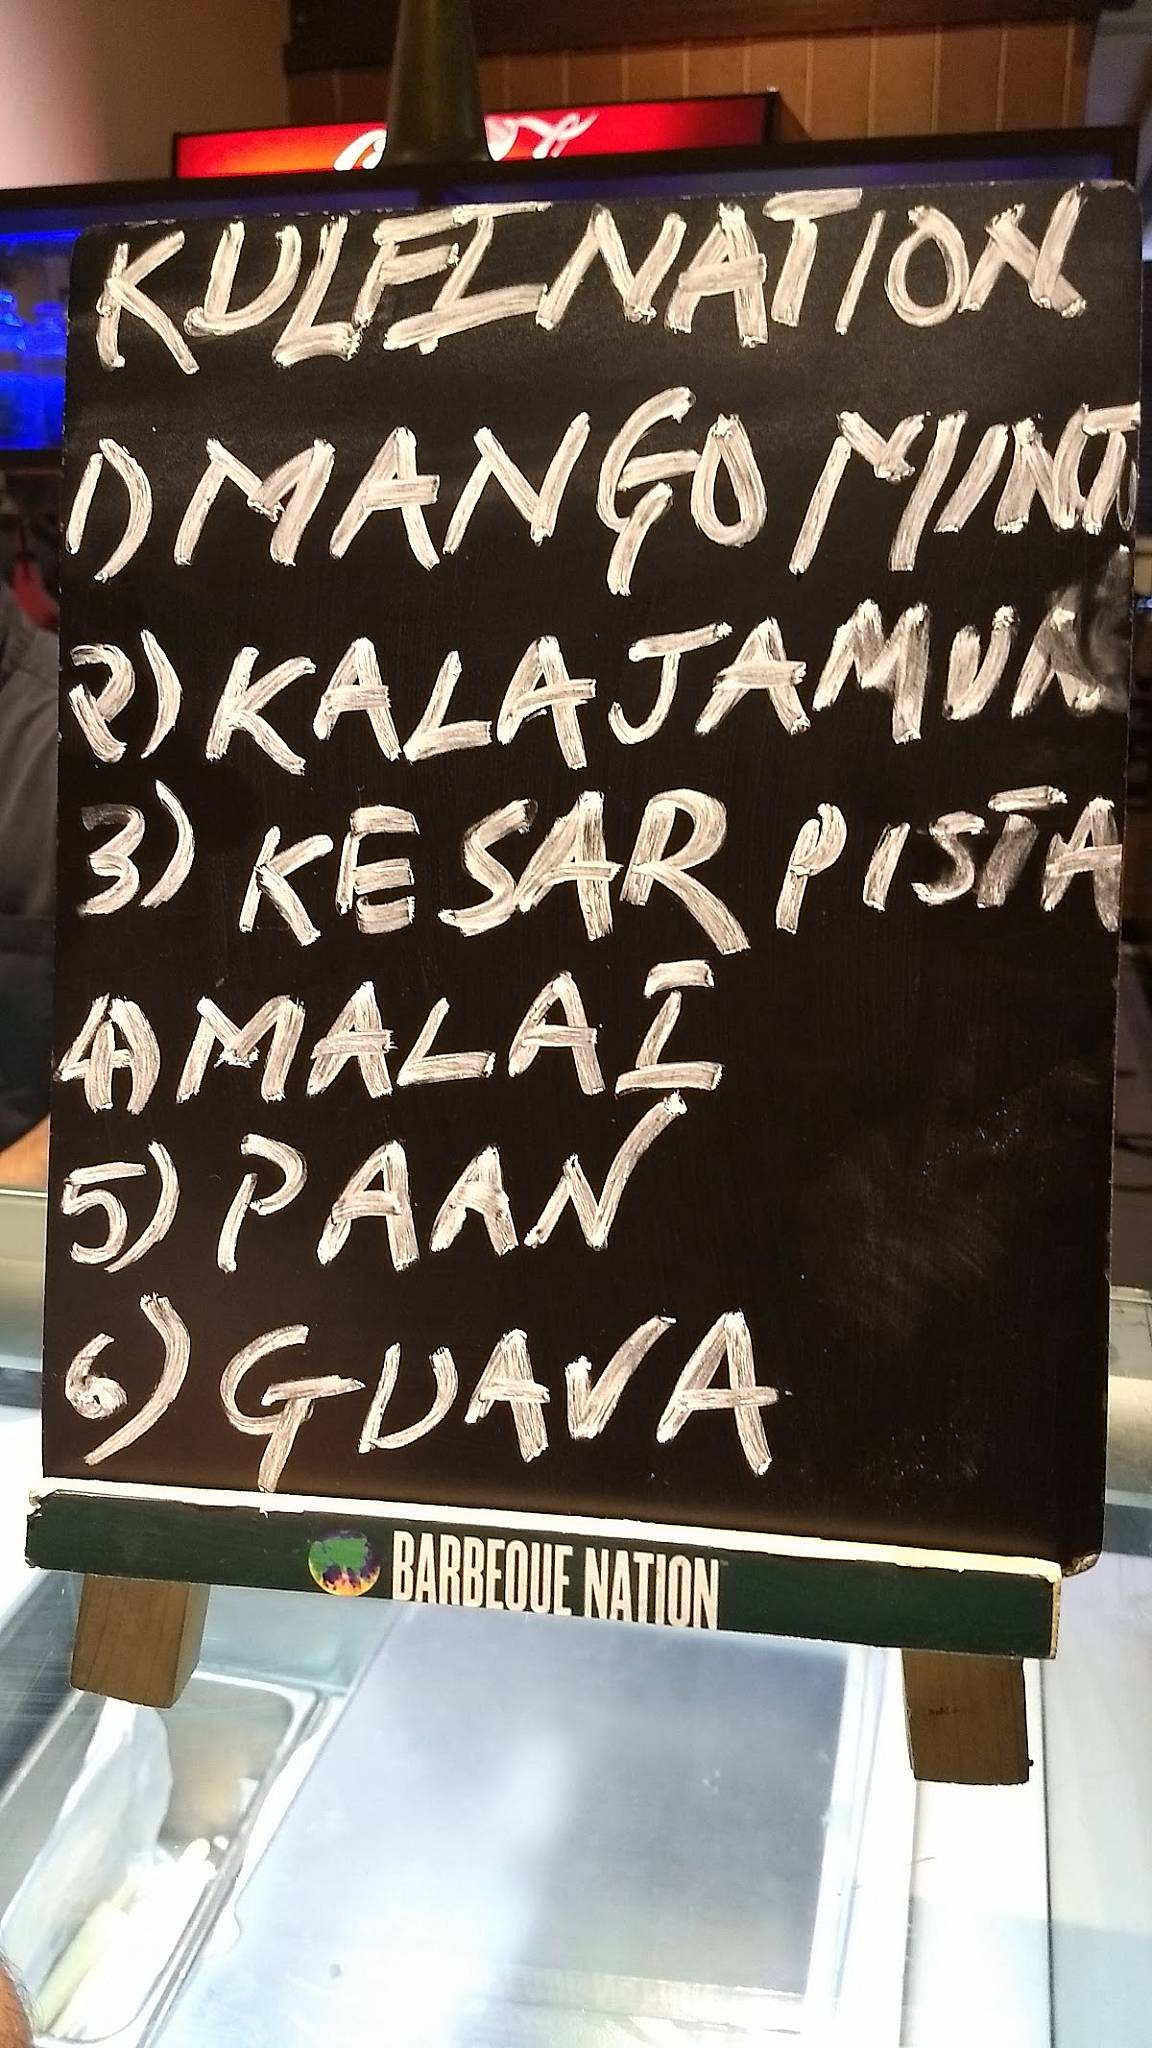 KULFI NATION
1) MANGO MINT
2) KALA JAMUN
3) KESAR PISTA
4) MALAI
5) PAAN
6) GUAVA
BARBEQUE NATION